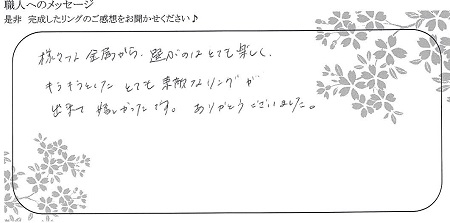 職人へのメッセージ
是非 完成したリングのご感想をお聞かせください♪
様々な金属から、選ぶのはとても楽しく、
キラキラとした とても素敵なリングが
出来て 嬉しかったです。 ありがとうございました。